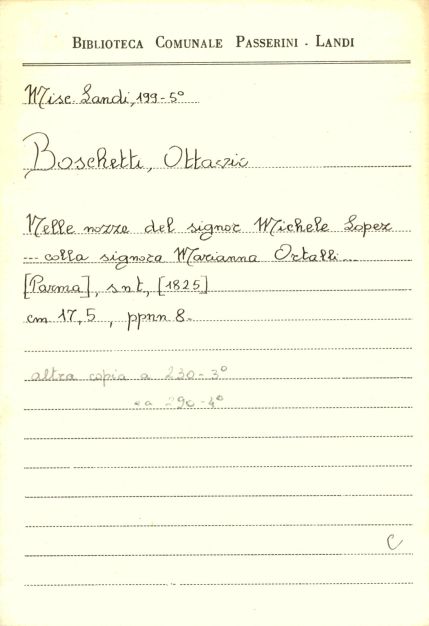 BIBLIOTECA COMUNALE PASSERINI - LANDI
Misc. Landi, 199-5°
Boschetti, Ottavio
Nelle nozze del signor Michele Lopez
... colla signora Marianna Ortalli ...
[Parma], snt, [1825]
cm 17,5, ppnn 8.
altra copia a 230-3°
ea 290-4°
C